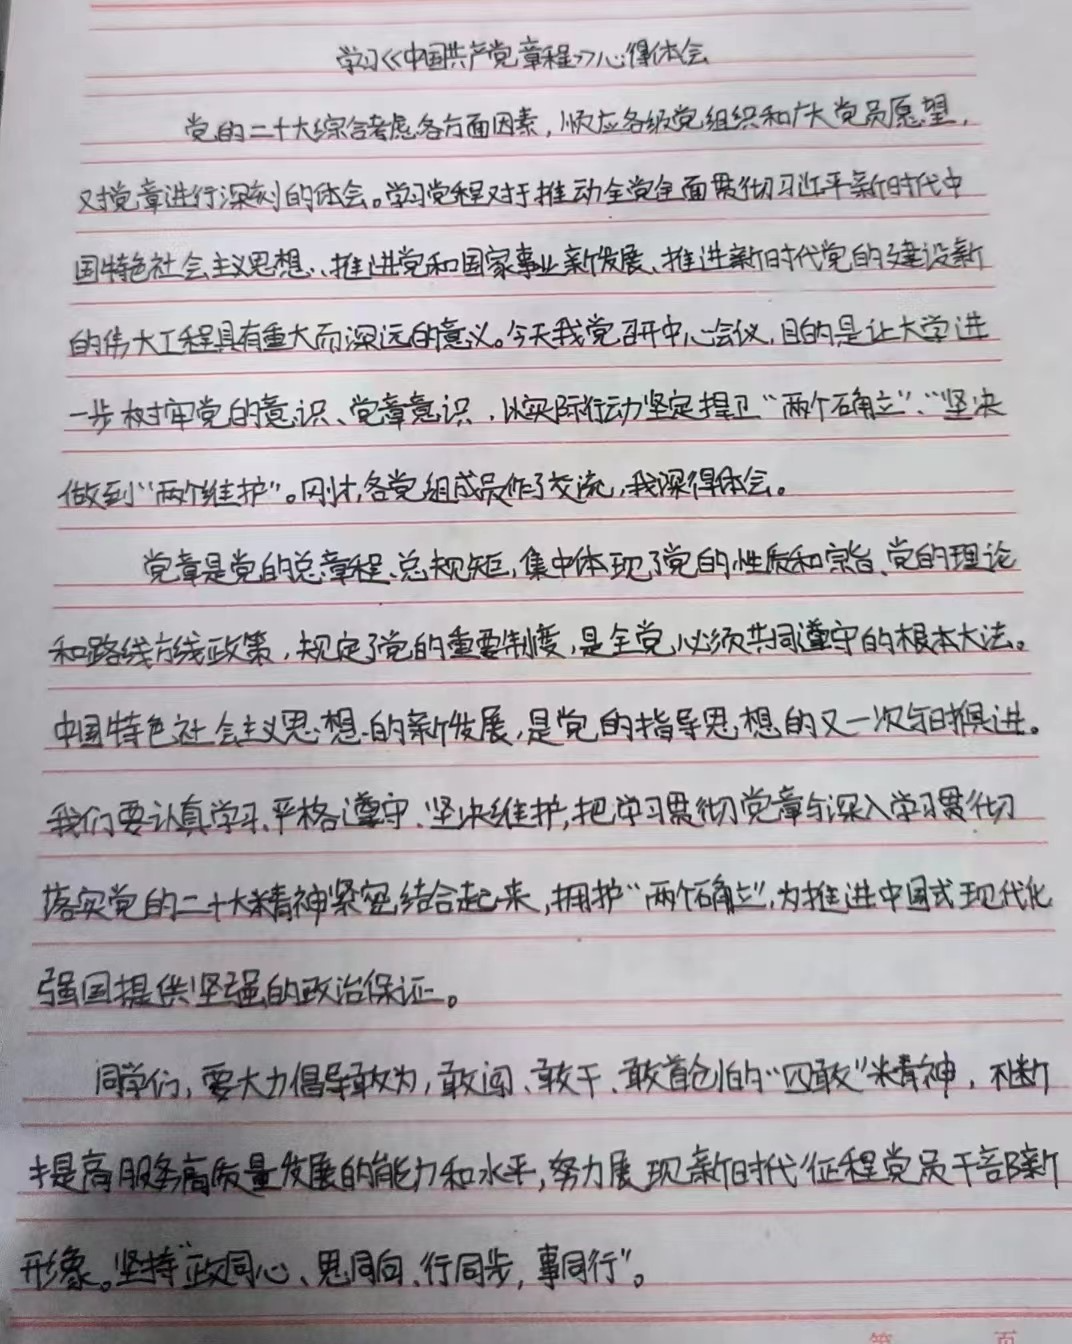 学习《中国共产党章程》心得体会
党的二十大综合考虑各方面因素，顺应各级党组织和广大党员愿望，
对党章进行深刻的体会。学习党程对于推动全党全面贯彻习近平新时代中
国特色社会主义思想、推进党和国家事业新发展、推进新时代党的建设新
的伟大工程具有重大而深远的意义。今天我党召开中心会议，目的是让大学进
一步树牢党的意识、党章意识，以实际行动坚定捍卫“两个确立”、“坚决
做到“两个维护”。刚才，各党组成员作了交流，我深得体会。
党章是党的总章程、总规矩，集中体现了党的性质和宗旨、党的理论
和路线方线政策，规定了党的重要制度，是全党必须共同遵守的根本大法。
中国特色社会主义思想的新发展，是党的指导思想的又一次与时俱进。
我们要认真学习、严格遵守、坚决维护，把学习贯彻党章与深入学习贯彻
落实党的二十大精神紧密结合起来，拥护“两个确立”，为推进中国式现代化
强国提供坚强的政治保证。
同学们，要大力倡导敢为，敢闯、敢干、敢首创的“四敢”精神，不断
提高服务高质量发展的能力和水平，努力展现新时代征程党员干部新
形象。坚持“政同心、思同向、行同步，事同行”。
第 页